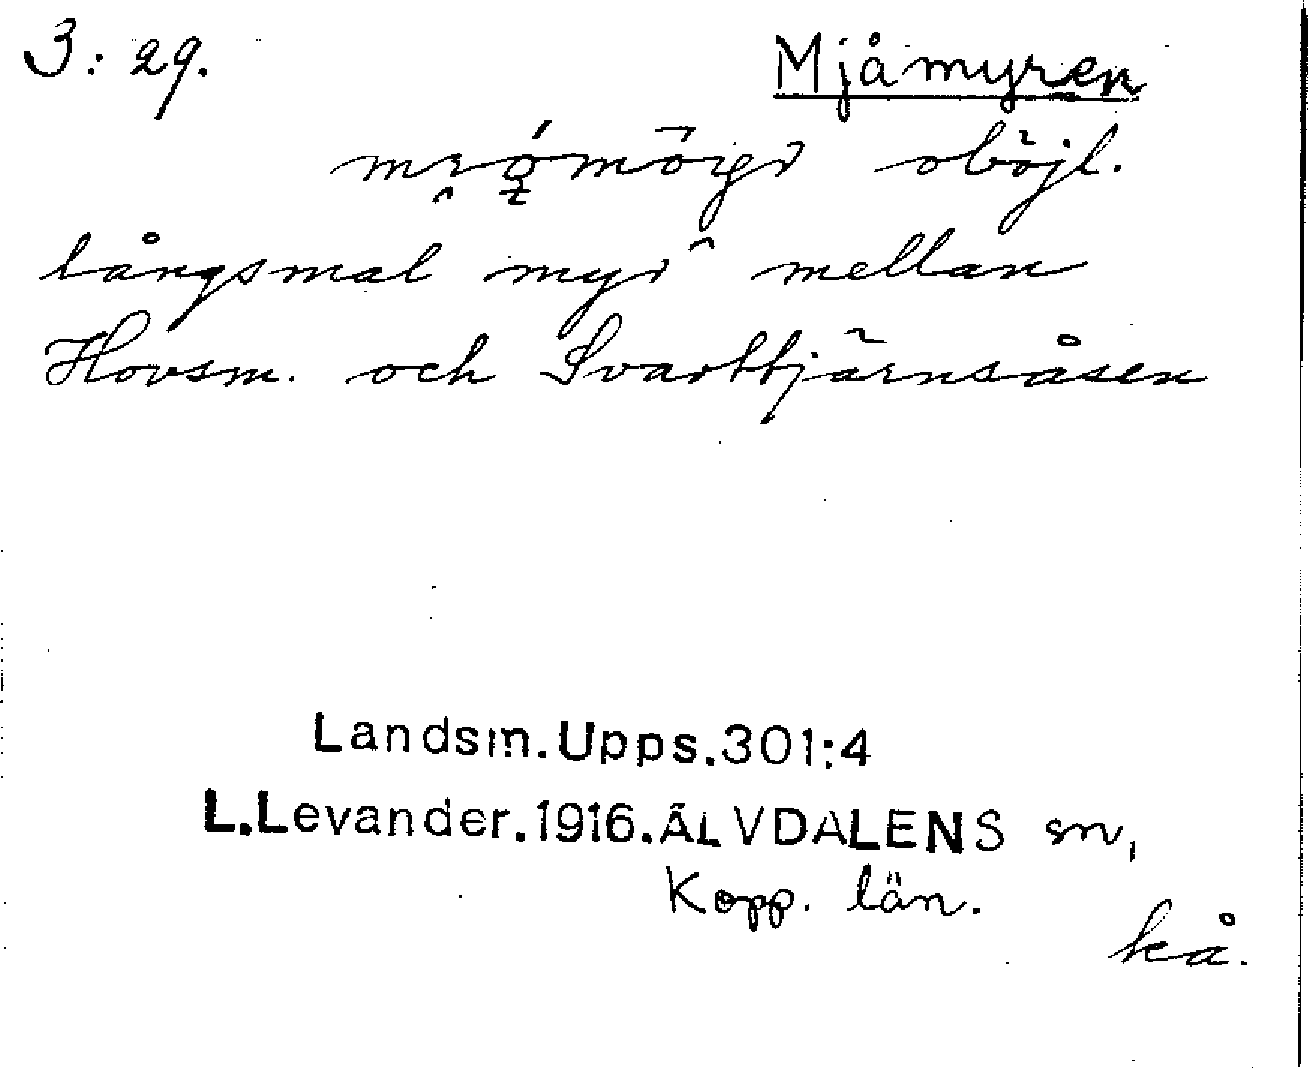 3: 29.
Mjåmyren
oböjl.
långsmal myr mellan
Hovsm. och Svarttjärnsåsen
Landsm.Upps.301:4
L.Levander.1916.ÄLVDALENS sn,
Kopp. län.
kå.